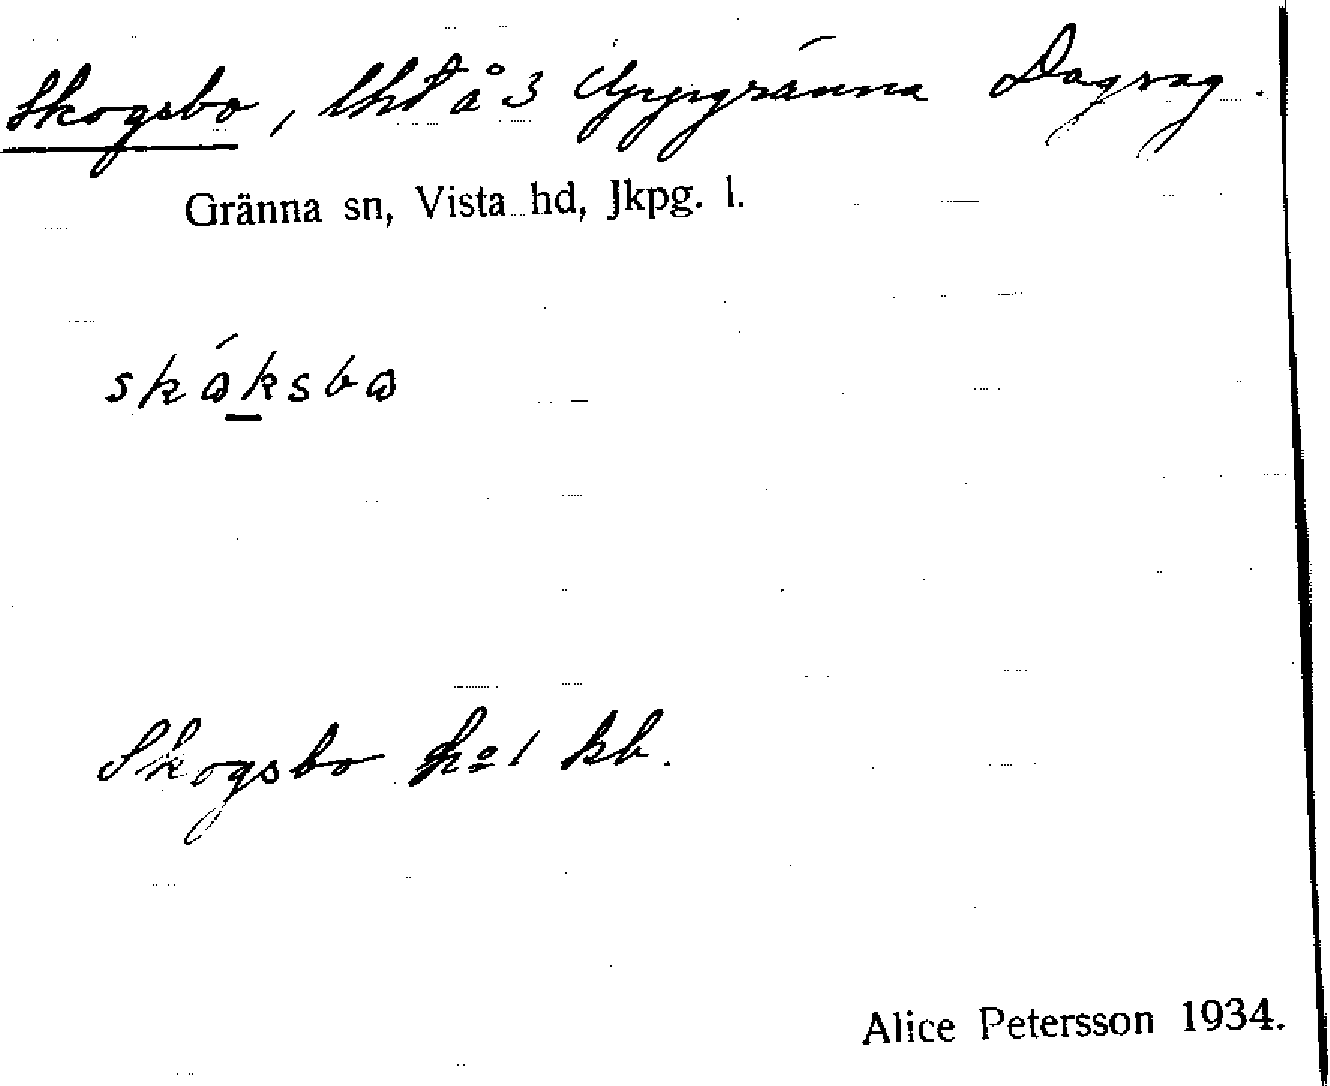 Skogsbo, lht å 3 Uppgränna Dagvag.
Gränna sn, Vista hd, Jkpg. l.
skáksba
Skogsbo h=1 kb.
Alice Petersson 1934.